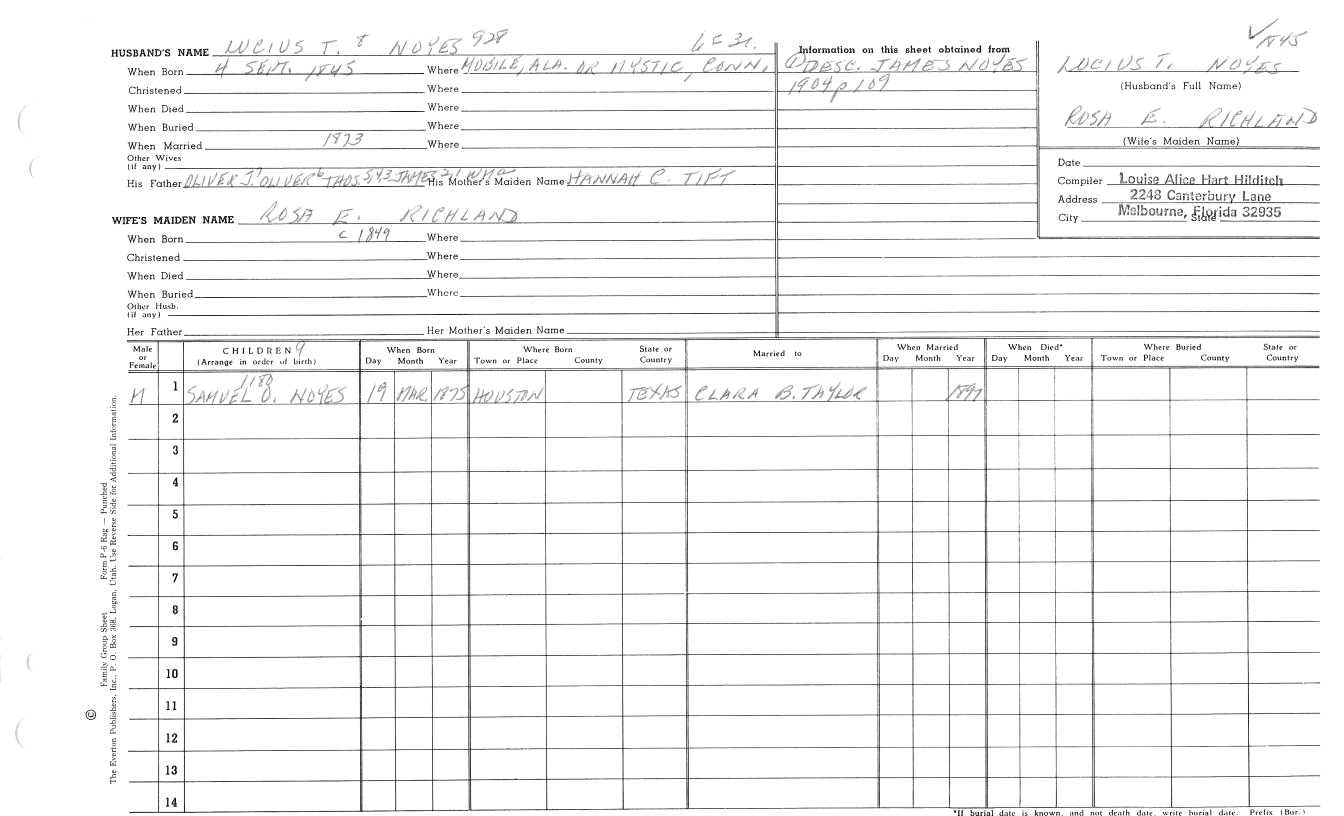 HUSBAND'S NAME LUCIUS T. 8 NOYES 928
When Born 4 SEPT. 1845 Where MOBILE, ALA. OR MYSTIC, CONN.
Christened Where
When Died Where
When Buried Where
When Married 1873 Where
Other Wives
(if any)
His Father OLIVER J.7 OLIVER6 THOS.543 JAMES21 His Mother's Maiden Name HANNAH C. TIFT
WIFE'S MAIDEN NAME ROSA E. RICHLAND
When Born c 1849 Where
Christened Where
When Died Where
When Buried Where
Other Husb.
(if any)
Her Father Her Mother's Maiden Name
Information on this sheet obtained from
① DESC. JAMES NOYES
1904 p 109
√ 1845
LUCIUS T. NOYES
(Husband's Full Name)
ROSA E. RICHLAND
(Wife's Maiden Name)
Date
Compiler Louise Alice Hart Hilditch
Address 2248 Canterbury Lane
City Melbourne, Florida 32935 State
Male or Female
CHILDREN 9
(Arrange in order of birth)
When Born
Day Month Year
Where Born
Town or Place County State or Country
Married to
When Married
Day Month Year
When Died*
Day Month Year
Where Buried
Town or Place County State or Country
1180
M 1 SAMUEL O. NOYES 19 MAR. 1875 HOUSTON TEXAS CLARA B. TAYLOR 1897
2
3
4
5
6
7
8
9
10
11
12
13
14
*If burial date is known, and not death date, write burial date. Prefix (Bur.)
Family Group Sheet Form P-6 Rag — Punched
© The Everton Publishers, Inc., P. O. Box 368, Logan, Utah. Use Reverse Side for Additional Information.